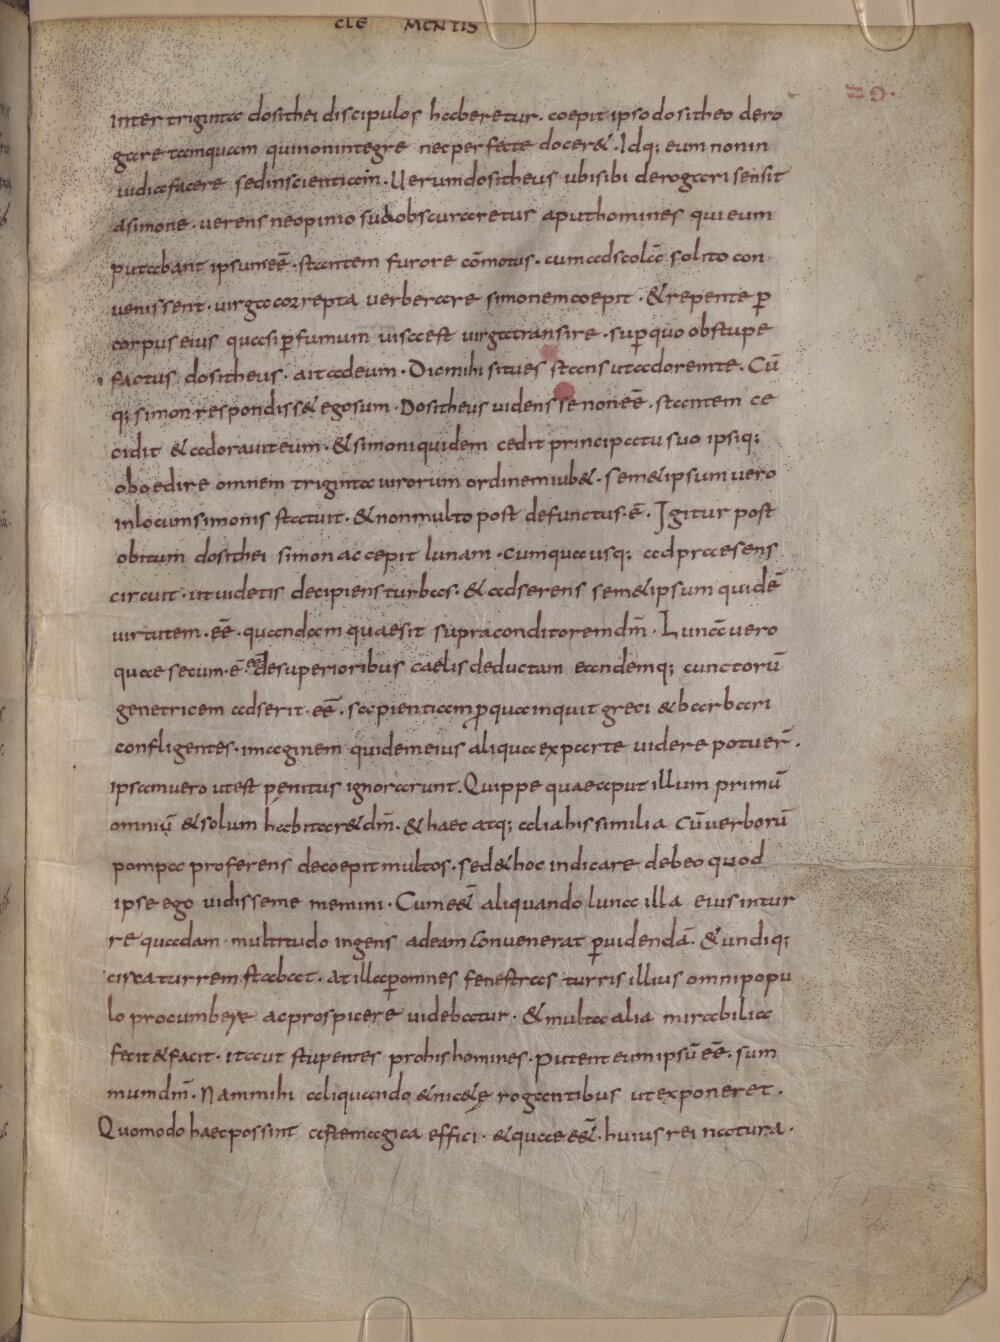 CLE MENTIS
29.
inter triginta dosithei discipulos haberetur. coepit ipso dositheo dero
gare tamquam qui non integre nec perfecte docer&. Idq; eum non in
uidia facere sed inscientiam. Uerum dositheus ubi sibi derogari sensit
asimone. uerens ne opinio sua obscuraretus aput homines qui eum
putabant ipsum eē. stantem furore cōmotus. cum ad scolā solito con
uenissent. uirga correpta uerberare simonem coepit. & repente p̄
corpus eius quasi p̄ fumum uisa est uirga transire. sup̄ quo obstupe
factus dositheus. ait ad eum. Dic mihi si tu es stans ut adorem te. Cū
q; simon respondiss& ego sum. Dositheus uidens se non eē. stantem ce
cidit & adorauit eum. & simoni quidem cedit principatu suo ipsiq;
oboedire omnem triginta uirorum ordinem iub&. sem& ipsum uero
in locum simonis statuit. & non multo post defunctus. ē. Igitur post
obitum dosithei simon accepit lunam. cum qua usq; ad praesens
circuit. ut uidetis decipiens turbas. & adserens sem& ipsum quidē
uirtutem. eē. quandam quae sit supra conditorem dm̄. Lunā uero
quae secum. ē. eē de superioribus caelis deductam eandemq; cunctorū
genetricem adserit. eē. sapientiam p̄ qua inquit greci & barbari
confligentes. imaginem quidem eius aliqua ex parte uidere potuer̄.
ipsam uero ut est penitus ignorarunt. Quippe quae aput illum primū
omniū & solum habitar& dm̄. & haec atq; alia his similia cū uerborū
pompa proferens decoepit multos. sed & hoc indicare debeo quod
ipse ego uidisse me memini. Cum e&̄ aliquando luna illa eius in tur
re quadam. multitudo ingens ad eam conuenerat p̄ uidendā. & undiq;
circa turrem stabat. at illa p̄ omnes fenestras turris illius omni popu
lo procumbere ac prospicere uidebatur. & multa alia mirabilia
fecit & facit. ita ut stupentes pro his homines. putent eum ipsū eē. sum
mum dm̄. Nam mihi aliquando & nic&ę rogantibus ut exponeret.
Quomodo haec possint aste magica effici. & quae e&̄. huius rei natura.